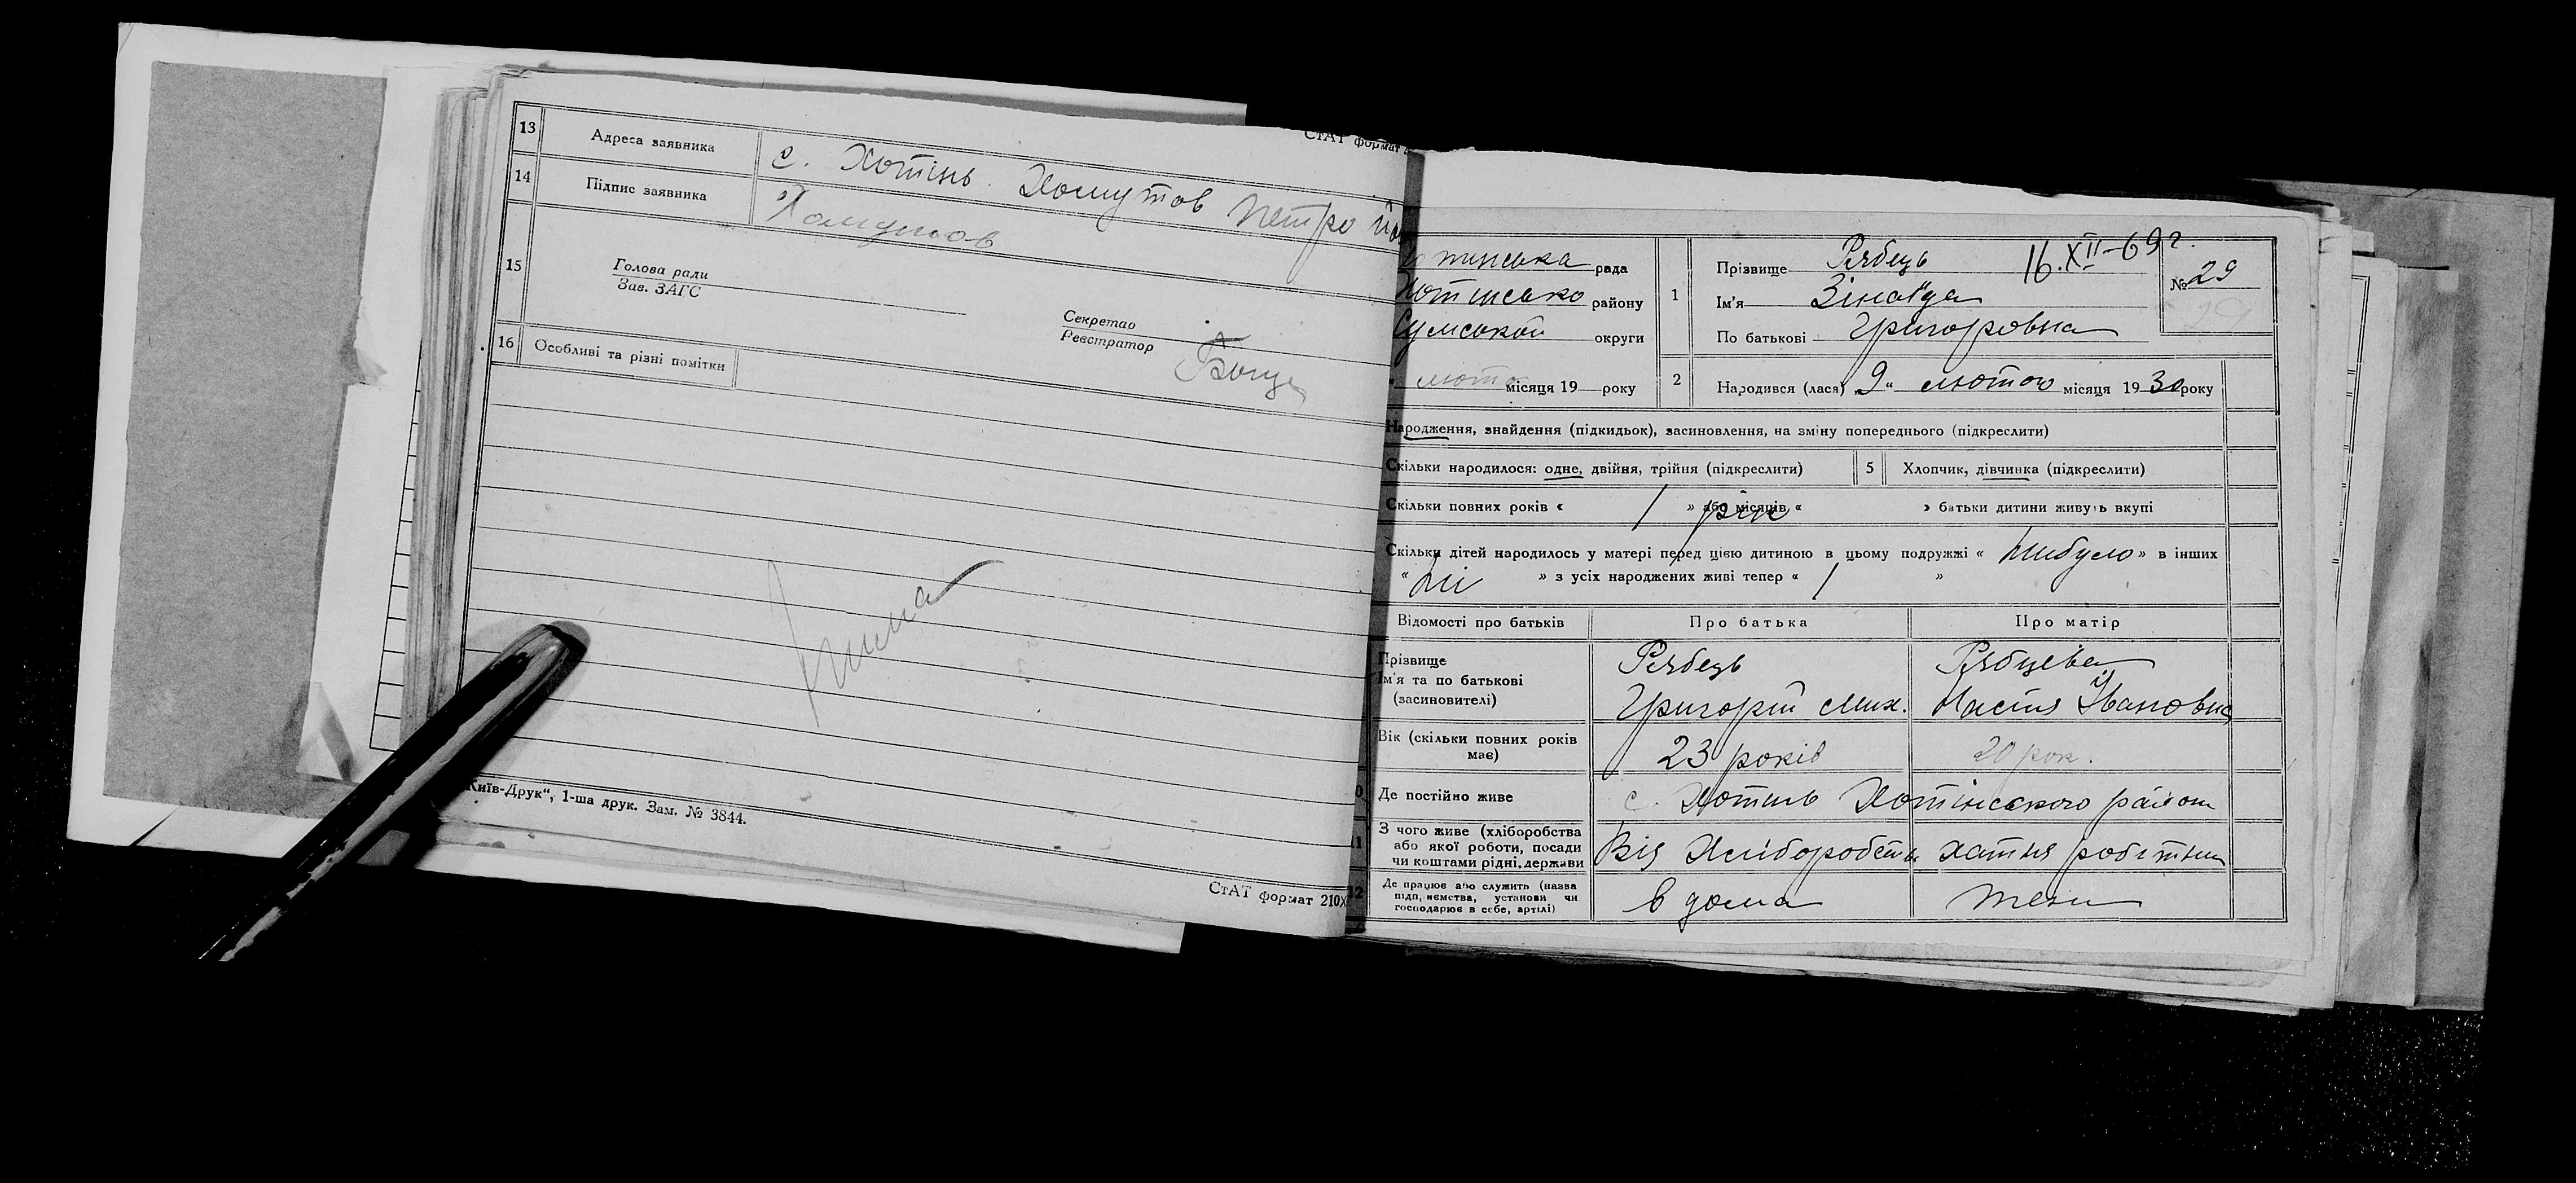 СтАТ формат
13 Адреса заявника с. Хотінь. Хомутов Петро
14 Підпис заявника Хомутов
15 Голова ради
Зав. ЗАГС
Секретар
Реєстратор
16 Особливі та різні помітки
Київ-Друк“, 1-ша друк. Зам. № 3844.
СтАТ формат 210х
отинська рада
Хотінсько району
Сумської округи
лютого місяця 19 року
1 Прізвище Рябець 16.XII-69г.
№ 29
29
Ім'я Зінаїда
По батькові Григоровна
2 Народився (лася) „9“ лютого місяця 1930 року
Народження, знайдення (підкидьок), засиновлення, на зміну попереднього (підкреслити)
Скільки народилося: одне, двійня, трійня (підкреслити) 5 Хлопчик, дівчинка (підкреслити)
Скільки повних років « 1 рік » або місяців « » батьки дитини живуть вкупі
Скільки дітей народилось у матері перед цією дитиною в цьому подружжі « Нибуло » в інших
« Ні » з усіх народжених живі тепер « 1 »
Відомості про батьків Про батька Про матір
Прізвище Рябець Рябцева
Ім'я та по батькові
(засиновителі) Григорій Мих. Настя Івановна
Вік (скільки повних років
має) 23 років 20 рок.
Де постійно живе с. Хотінь Хотінського району
З чого живе (хліборобства
або якої роботи, посади
чи коштами рідні, держави Від Хліборобств хатня робітниц
12 Де працює або служить (назва
підприємства, установи чи
господарює в себе, артілі) в дома теж